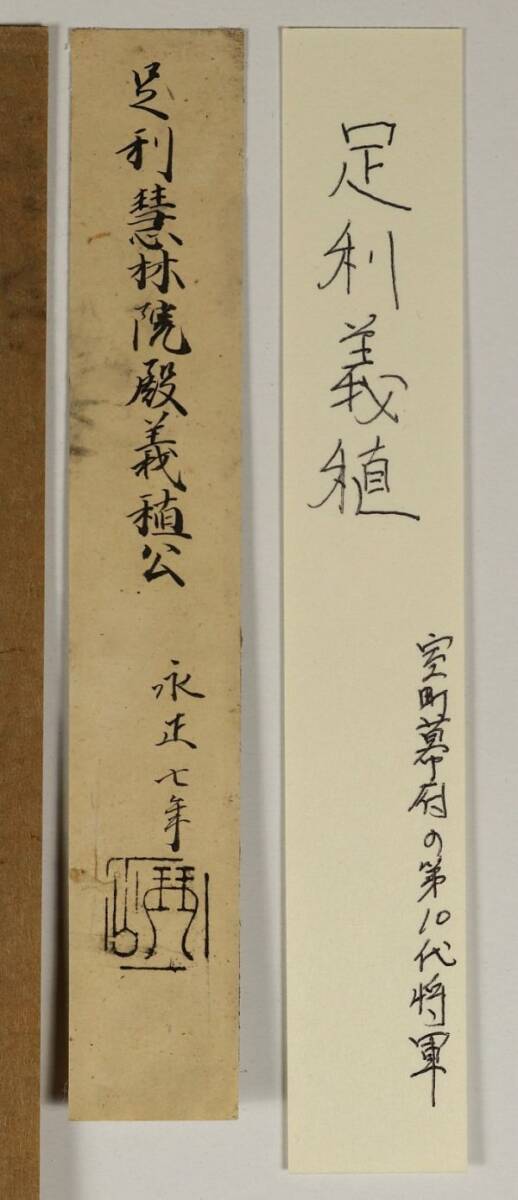 足利慧林院殿義稙公
永正七年
琴山
足利義稙
室町幕府の第10代将軍